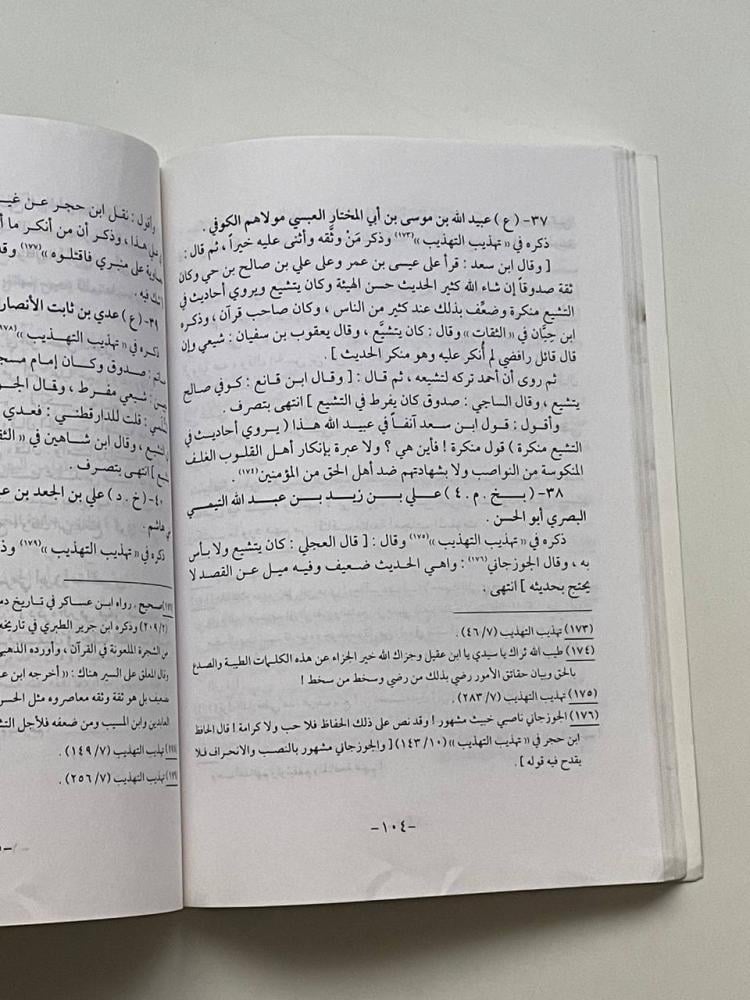 ٣٧- ( ع ) عبيد الله بن موسى بن أبي المختار العبسي مولاهم الكوفي .
ذكره في « تهذيب التهذيب »(١٧٣) وذكر مَنْ وثَّقه وأثنى عليه خيراً ، ثم قال :
[ وقال ابن سعد : قرأ على عيسى بن عمر وعلى علي بن صالح بن حي وكان
ثقة صدوقاً إن شاء الله كثير الحديث حسن الهيئة وكان يتشيع ويروي أحاديث في
التشيع منكرة وضعِّف بذلك عند كثير من الناس ، وكان صاحب قرآن ، وذكره
ابن حِبَّان في « الثقات » وقال : كان يتشيَّع ، وقال يعقوب بن سفيان : شيعي وإن
قال قائل رافضي لم أُنكر عليه وهو منكر الحديث ] .
ثم روى أن أحمد تركه لتشيعه ، ثم قال : [ وقال ابن قانع : كوفي صالح
يتشيع ، وقال الساجي : صدوق كان يفرط في التشيع ] انتهى بتصرف .
وأقول : قول ابن سعد آنفاً في عبيد الله هذا ( يروي أحاديث في
التشيع منكرة ) قول منكرة ! فأين هي ؟ ولا عبرة بإنكار أهل القلوب الغلف
المنكوسة من النواصب ولا بشهادتهم ضد أهل الحق من المؤمنين(١٧٤) .
٣٨- ( بخ . م . ٤ ) علي بن زيد بن عبد الله التيمي
البصري أبو الحسن .
ذكره في « تهذيب التهذيب »(١٧٥) وقال : [ قال العجلي : كان يتشيع ولا بأس
به ، وقال الجوزجاني(١٧٦) : واهي الحديث ضعيف وفيه ميل عن القصد لا
يحتج بحديثه ] انتهى .
(١٧٣) تهذيب التهذيب (٤٦/٧) .
(١٧٤) طيب الله ثراك يا سيدي يا ابن عقيل وجزاك الله خير الجزاء عن هذه الكلمات الطيبة والصدع
بالحق وبيان حقائق الأمور رضي بذلك من رضي وسخط من سخط !
(١٧٥) تهذيب التهذيب (٢٨٣/٧) .
(١٧٦) الجوزجاني ناصبي خبيث مشهور ! وقد نص على ذلك الحفاظ فلا حب ولا كرامة ! قال الحافظ
ابن حجر في « تهذيب التهذيب » (١٤٣/١٠) [ والجوزجاني مشهور بالنصب والانحراف فلا
يقدح فيه قوله ] .
-١٠٤-
وأقول : نقل ابن حجر عن
هذا ، وذكر أن من أنكر ما
على منبري فاقتلوه »(١٧٧)
فيه .
٣٩- ( ع ) عدي بن ثابت
ذكره في « تهذيب التهذيب »
صدوق وكان إمام
شيعي مفرط ، وقال
قلت للدارقطني : فعدي
وقال ابن شاهين في
انتهى بتصرف .
٤٠- ( خ . د ) علي بن الجعد بن
هاشم .
ذكره في « تهذيب التهذيب »(١٧٩)
صحيح . رواه ابن عساكر في تاريخ
(٢٠٩/٢) وذكره ابن جرير الطبري في تاريخه
من الشجرة الملعونة في القرآن ، وأورده
وقال المعلق على السير هناك : « أخرجه ابن
ضعيف بل هو ثقة وثقه معاصروه مثل
العابدين وابن المسيب ومن ضعفه فلأجل
تهذيب التهذيب (١٤٩/٧) .
تهذيب التهذيب (٢٥٦/٧) .